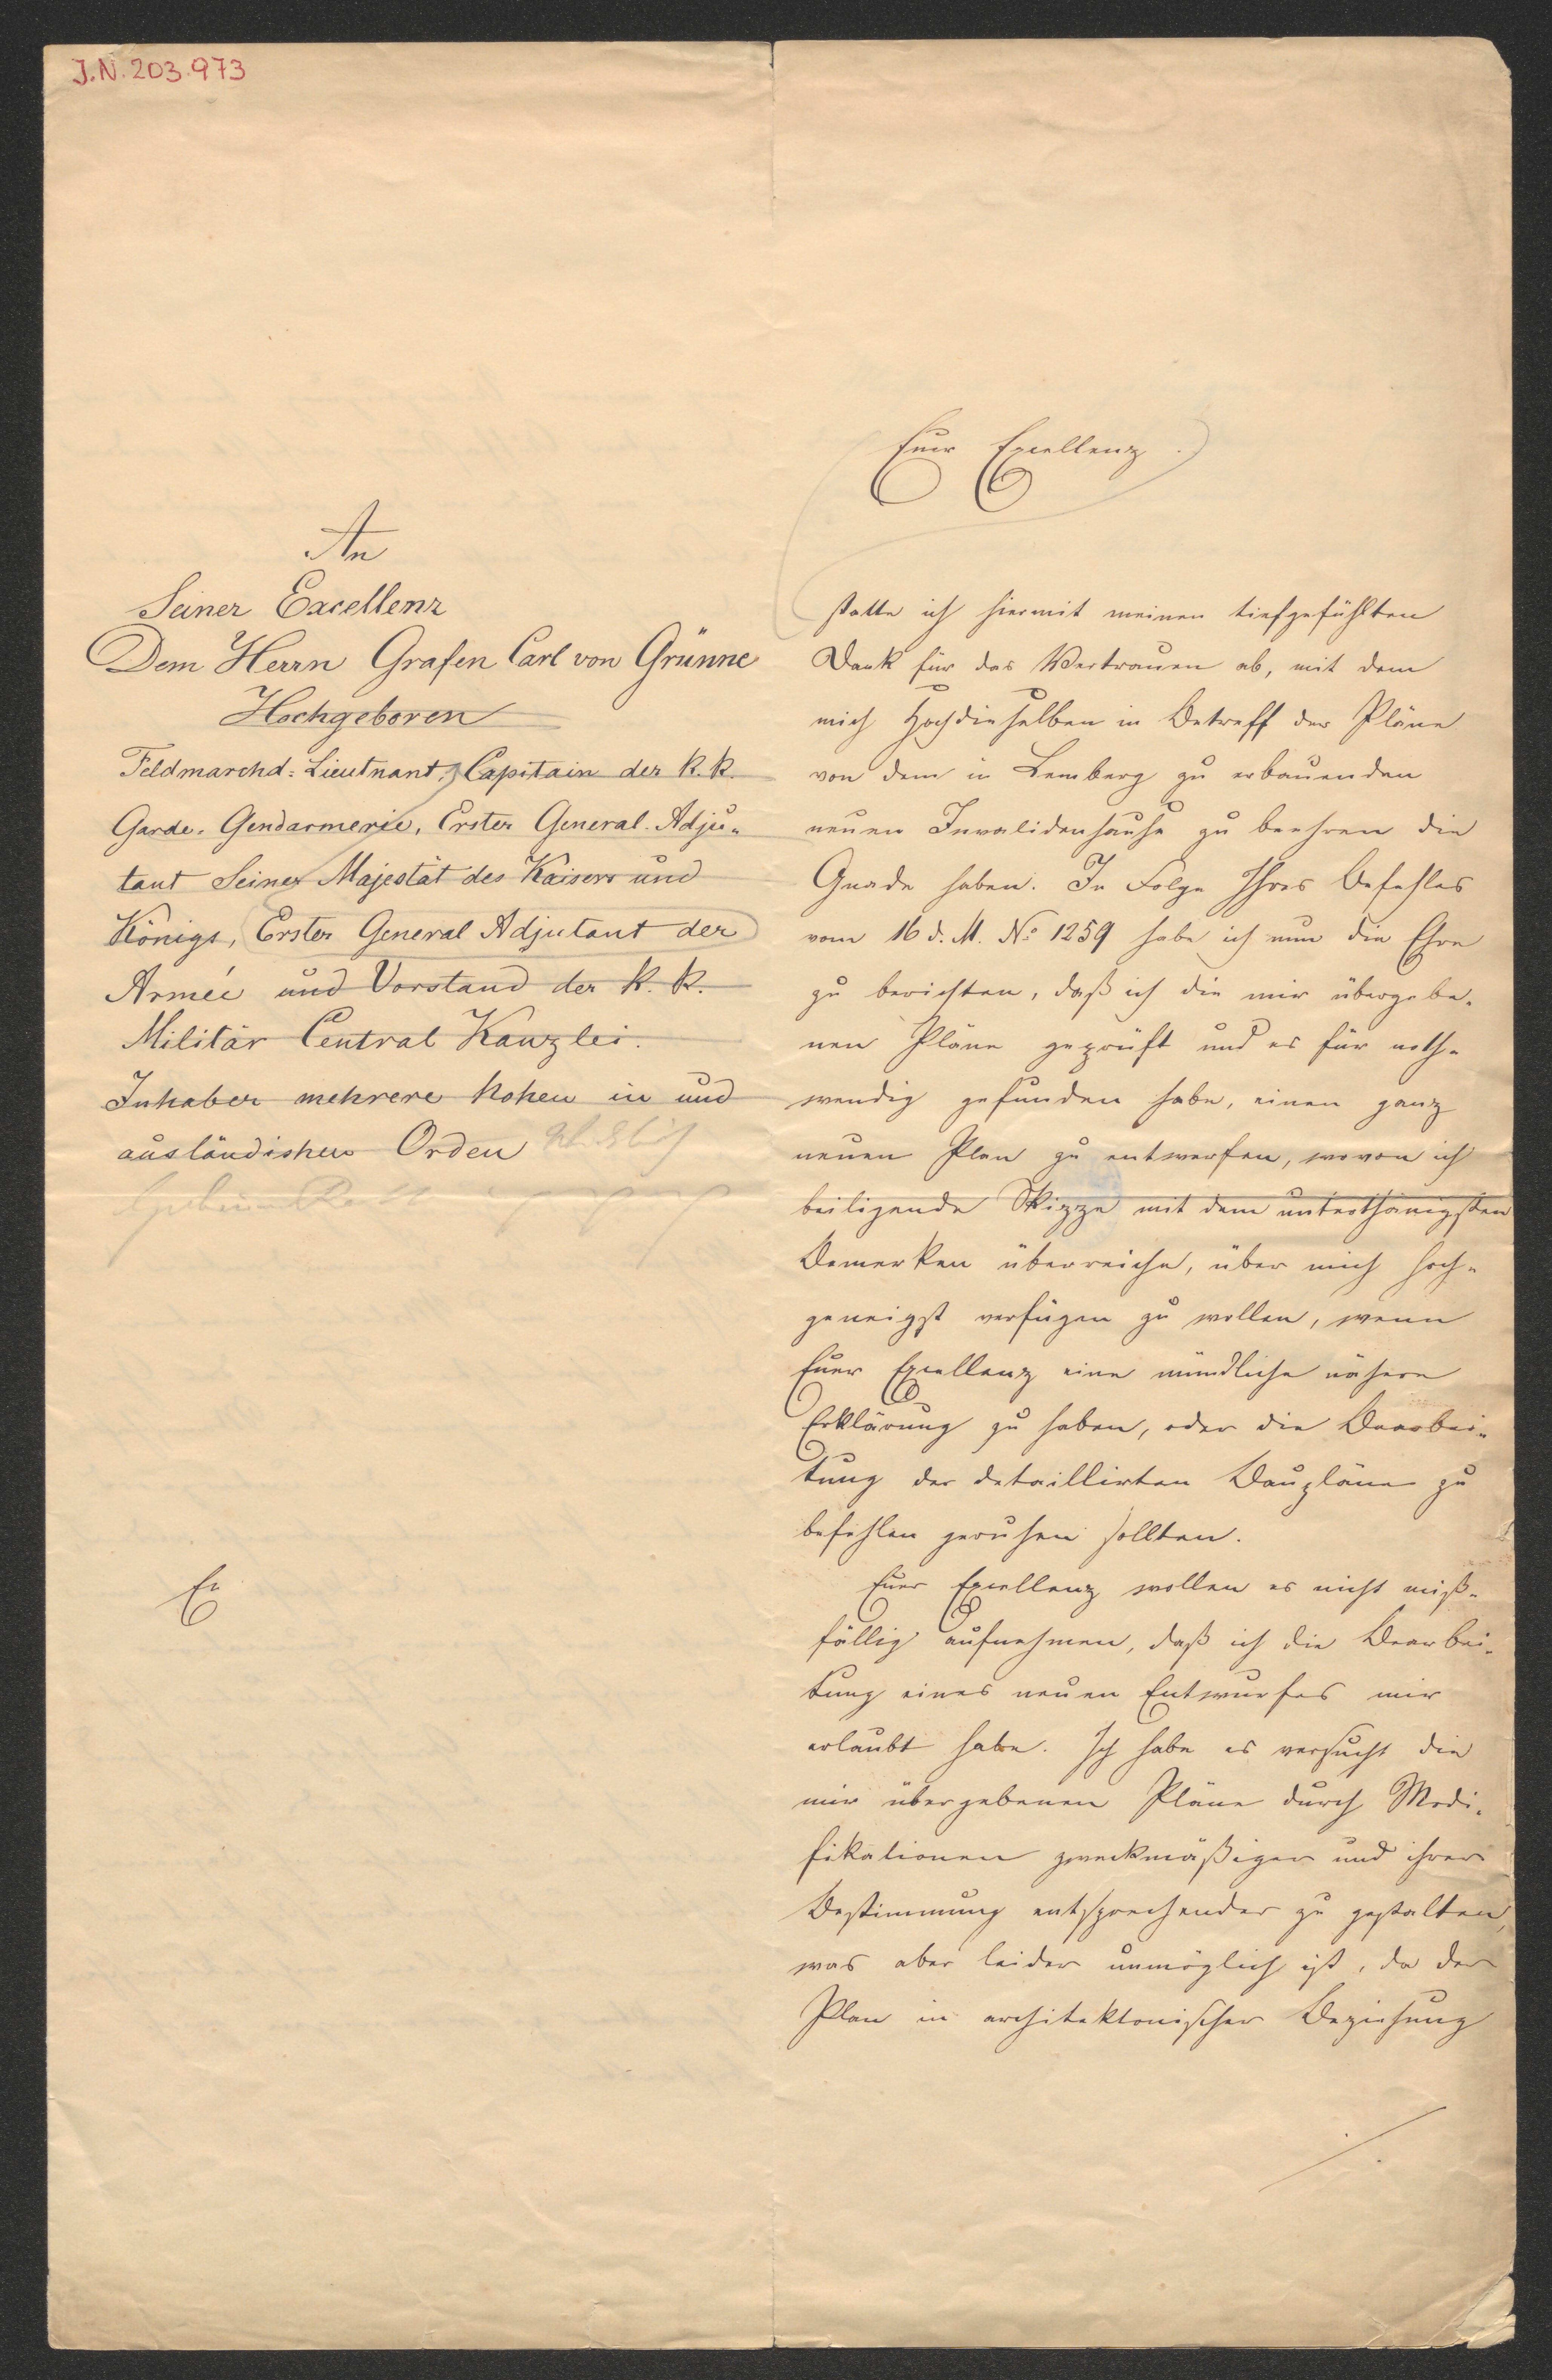 J.N. 203.973
An
Seiner Excellenz
Dem Herrn Grafen Carl von Grünne
Hochgeboren
Feldmarchd: Lieutnant, Capitain der k. k.
Garde-Gendarmerie, Erster General-Adju-
tant Seiner Majestät des Kaisers und
Königs, Erster General Adjutant der
Armée und Vorstand der k. k.
Militär Central Kanzlei.
Inhaber mehrere hohen in und
ausländishen Orden
E
Euer Excellenz
statte ich hiermit meinen tiefgefühlten
Dank für das Vertrauen ab, mit dem
mich Hochdieselben in Betreff der Pläne
von dem in Lemberg zu erbauenden
neuen Invalidenhause zu beehren die
Gnade haben. In Folge Ihres Befehles
vom 16 d. M. No 1259 habe ich nun die Ehre
zu berichten, daß ich die mir übergebe-
nen Pläne geprüft und es für noth-
wendig gefunden habe, einen ganz
neuen Plan zu entwerfen, wovon ich
beiligende Skizze mit dem unterthänigsten
Bemerken überreiche, über mich hoch-
geneigst verfügen zu wollen, wenn
Euer Excellenz eine mündliche nähere
Erklärung zu haben, oder die Bearbei-
tung der detaillirten Baupläne zu
befehlen geruhen sollten.
Euer Excellenz wollen es nicht miß-
fällig aufnehmen, daß ich die Bearbei-
tung eines neuen Entwurfes mir
erlaubt habe. Ich habe es versucht die
mir übergebenen Pläne durch Modi-
fikationen zweckmäßiger und ihrer
Bestimmung entsprechender zu gestalten,
was aber leider unmöglich ist, da der
Plan in architektonischer Beziehung
./.